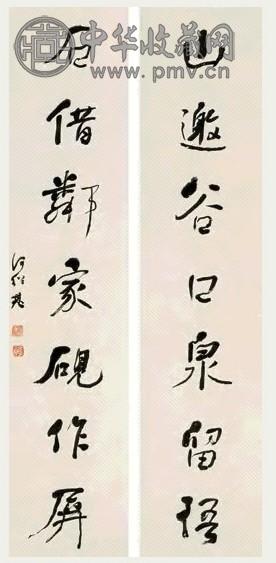 中华收藏网
www.pmv.cn
山邀谷口泉留語
石借鄰家硯作屏
何紹基